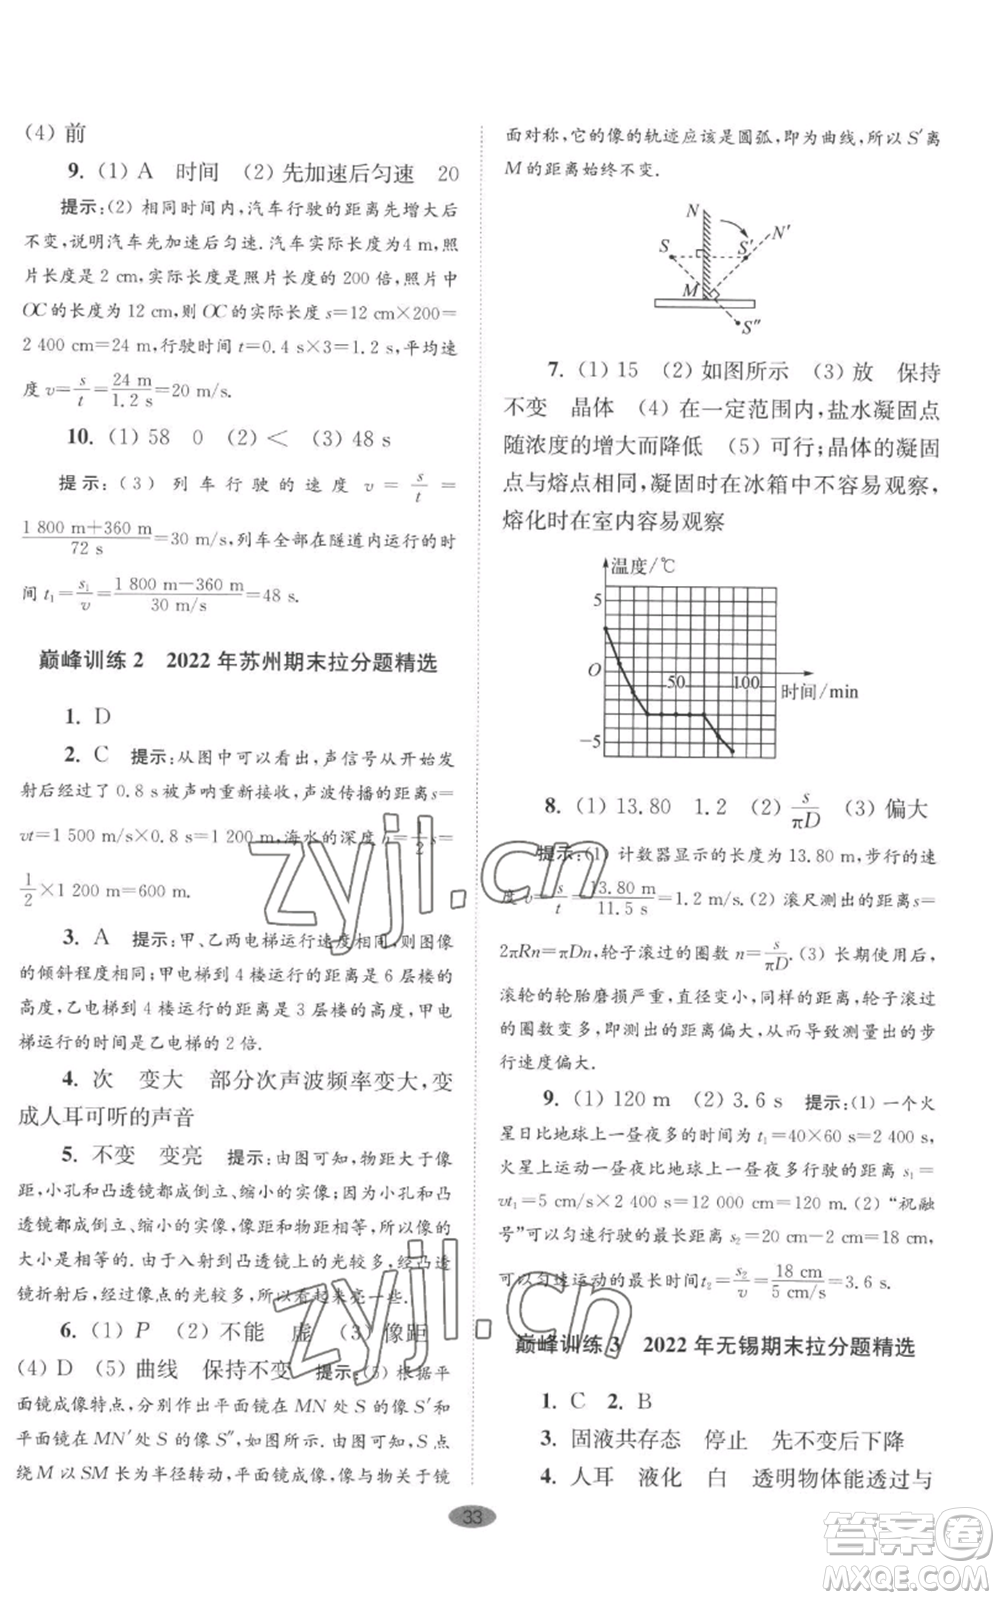 (4) 前
9. (1) A　时间　(2) 先加速后匀速　20
提示:(2) 相同时间内,汽车行驶的距离先增大后
不变,说明汽车先加速后匀速.汽车实际长度为4 m,照
片长度是 2 cm,实际长度是照片长度的 200 倍,照片中
OC的长度为 12 cm,则 OC的实际长度 s=12 cm×200=
2 400 cm=24 m,行驶时间 t=0.4 s×3=1.2 s,平均速
度 v=s/t=24 m/1.2 s=20 m/s.
10. (1) 58　0　(2) <　(3) 48 s
提示:(3) 列车行驶的速度 v=s/t=
(1 800 m+360 m)/72 s=30 m/s,列车全部在隧道内运行的时
间 t₁=s₁/v=(1 800 m-360 m)/30 m/s=48 s.
巅峰训练 2　2022 年苏州期末拉分题精选
1. D
2. C　提示:从图中可以看出,声信号从开始发
射后经过了 0.8 s 被声呐重新接收,声波传播的距离 s=
vt=1 500 m/s×0.8 s=1 200 m,海水的深度 h=1/2 s=
1/2×1 200 m=600 m.
3. A　提示:甲、乙两电梯运行速度相同,则图像
的倾斜程度相同;甲电梯到 4 楼运行的距离是 6 层楼的
高度,乙电梯到 4 楼运行的距离是 3 层楼的高度,甲电
梯运行的时间是乙电梯的 2 倍.
4. 次　变大　部分次声波频率变大,变
成人耳可听的声音
5. 不变　变亮　提示:由图可知,物距大于像
距,小孔和凸透镜成倒立、缩小的实像;当小孔和凸
透镜都成倒立、缩小的实像,像距和物距相等,所以像的
大小是相等的.由于入射到凸透镜上的光较多,凸透镜
折射后,经过像点的光较多,所以看起来亮一些.
6. (1) P　(2) 不能　虚　(3) 像距
(4) D　(5) 曲线　保持不变　提示:根据平
面镜成像特点,分别作出平面镜在 MN 处 S 的像 S′和
平面镜在 MN′处 S 的像 S″,如图所示.由图可知,S 点
绕 M 以 SM 长为半径转动,平面镜成像时,像与物关于镜
面对称,它的像的轨迹应该是圆弧,即为曲线,所以 S′离
M 的距离始终不变.
N
N′
S
S′
M
S″
7. (1) 15　(2) 如图所示　(3) 放　保持
不变　晶体　(4) 在一定范围内,盐水凝固点
随浓度的增大而降低　(5) 可行;晶体的凝固
点与熔点相同,凝固时在冰箱中不容易观察,
熔化时在室内容易观察
温度/℃
5
O
50
100
时间/min
-5
8. (1) 13.80　1.2　(2) s/πD　(3) 偏大
提示:(1) 计数器显示的长度为 13.80 m,步行的速
度 v=s/t=13.80 m/11.5 s=1.2 m/s.(2) 滚尺测出的距离 s=
2πRn=πDn,轮子滚过的圈数 n=s/πD.(3) 长期使用后,
滚轮的轮胎磨损严重,直径变小,同样距离,轮子滚过
的圈数变多,即测出的距离偏大,从而导致测量出的步
行速度偏大.
9. (1) 120 m　(2) 3.6 s　提示:(1) 一个火
星日比地球上一昼夜多的时间为 t₁=40×60 s=2 400 s,
火星上运动一昼夜比地球上一昼夜多运动的距离 s₁=
vt₁=5 cm/s×2 400 s=12 000 cm=120 m.(2) “祝融
号”可以匀速行驶的最长距离 s₂=20 cm-2 cm=18 cm,
可以匀速运动的最长时间 t₂=s₂/v=18 cm/5 cm/s=3.6 s.
巅峰训练 3　2022 年无锡期末拉分题精选
1. C　2. B
3. 固液共存态　停止　先不变后下降
4. 人耳　液化　白　透明物体能透过与
33
zyjl.cn
zyjl.cn
答案圈
MXQE.COM